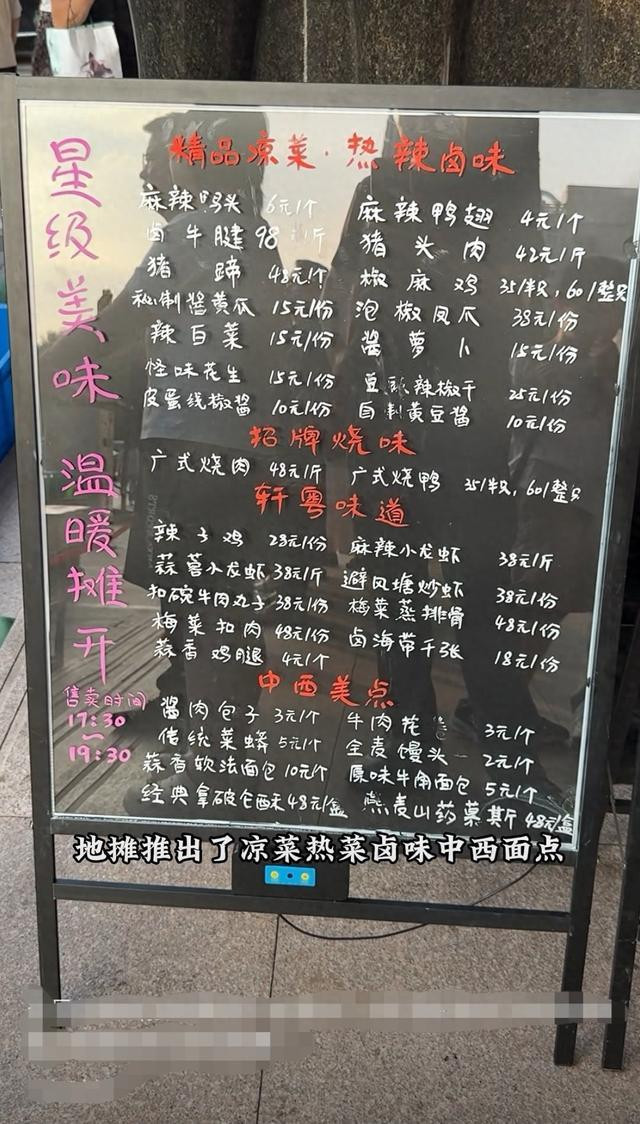 星级美味 温暖摊开
售卖时间
17:30
~
19:30
精品凉菜·热辣卤味
麻辣鸭头 6元1个 麻辣鸭翅 4元1个
卤牛腱 98 斤 猪头肉 42元1斤
猪蹄 48元1个 椒麻鸡 35/半只,60/整只
秘制酱黄瓜 15元1份 泡椒凤爪 38元1份
辣白菜 15元1份 酱萝卜 15元1份
怪味花生 15元1份 豆豉辣椒干 25元1份
皮蛋线椒酱 10元1份 自制黄豆酱 10元1份
招牌烧味
广式烧肉 48元1斤 广式烧鸭 35/半只,60/整只
轩粤味道
辣子鸡 28元1份 麻辣小龙虾 38元1斤
蒜蓉小龙虾 38元1斤 避风塘炒虾 38元1份
扣碗牛肉丸子 38元1份 梅菜蒸排骨 48元1份
梅菜扣肉 48元1份 卤海带千张 18元1份
蒜香鸡腿 4元1个
中西美点
酱肉包子 3元1个 牛肉花 3元1个
传统菜蟒 5元1个 全麦馒头 2元1个
蒜香软法面包 10元1个 原味牛角面包 5元1个
经典拿破仑酥 48元1盒 燕麦山药菓斯 48元1盒
地摊推出了凉菜热菜卤味中西面点